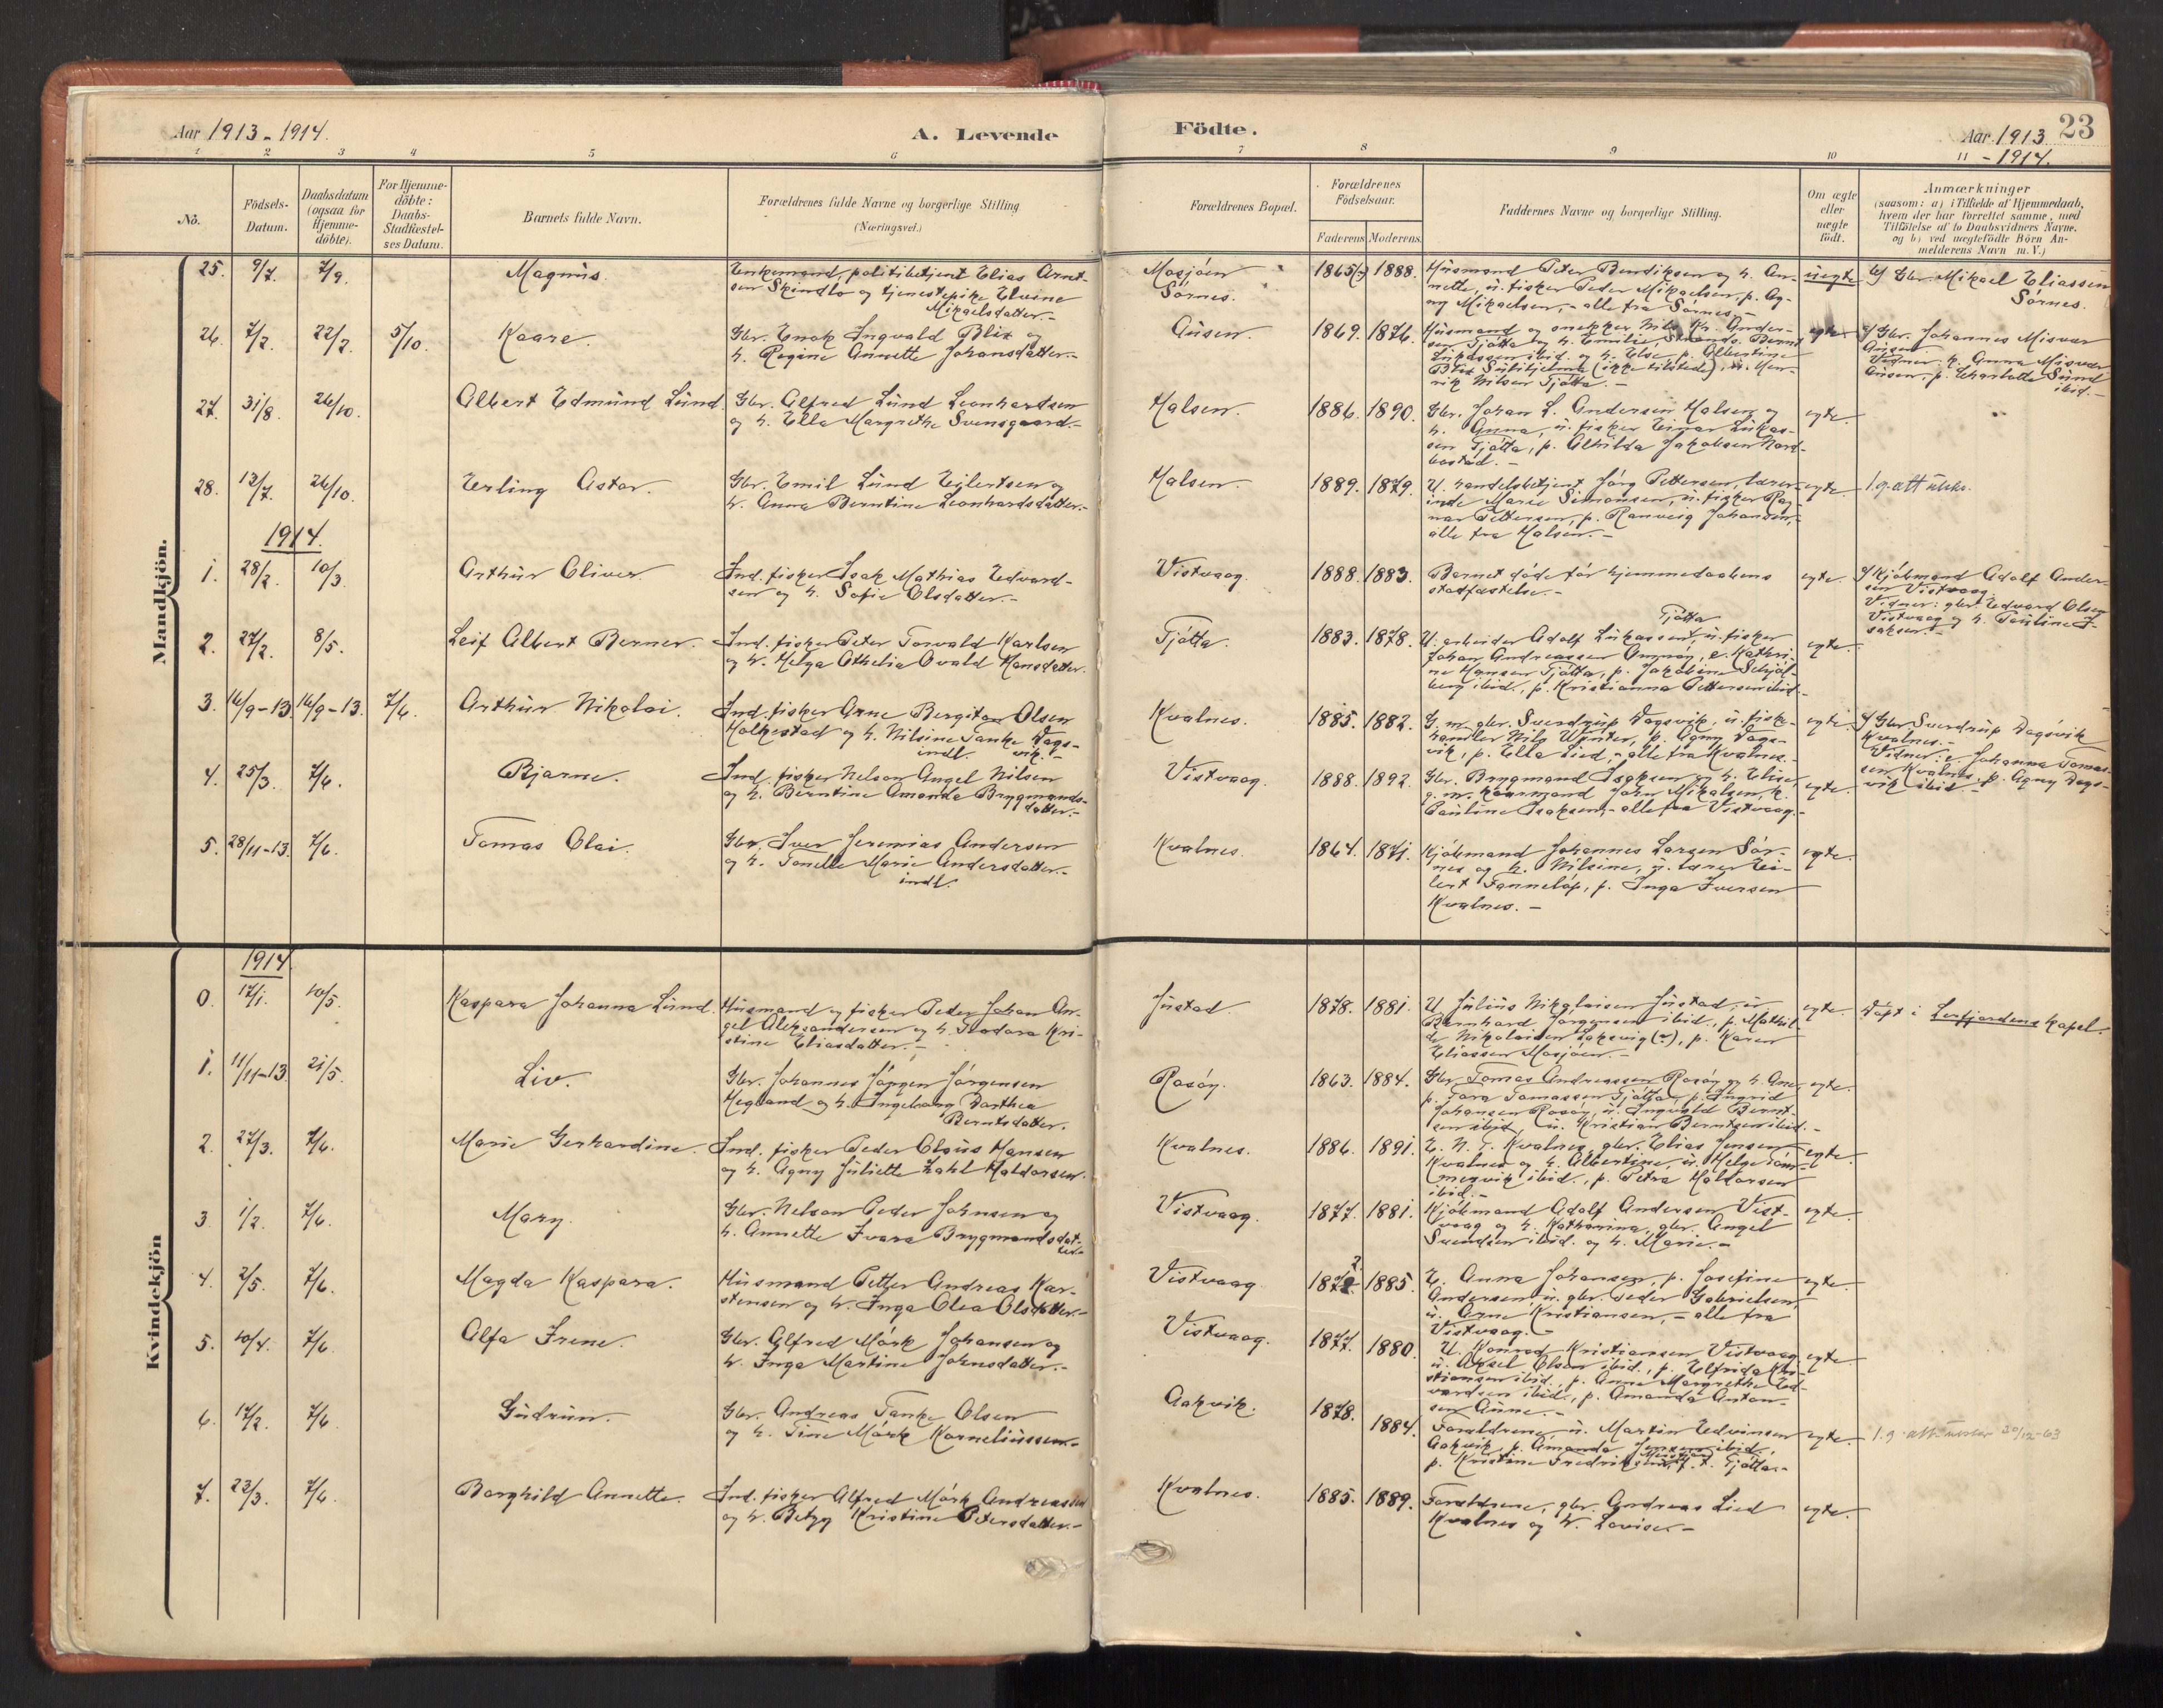 Aar 1913-1914.
A. Levende
Födte.
Aar 1913
23
- 1914.
1 2 3 4 5 6 7 8 9 10 11
No.
Födsels-
Datum.
Daabsdatum
(ogsaa for
Hjemme-
döbte).
For Hjemme-
döbte:
Daabs-
Stadfæstel-
ses Datum.
Barnets fulde Navn.
Forældrenes fulde Navne og borgerlige Stilling
(Næringsvei.)
Forældrenes Bopæl.
Forældrenes
Födselsaar.
Faderens Moderens.
Faddernes Navne og borgerlige Stilling.
Om ægte
eller
uægte
födt.
Anmærkninger
(saasom: a) i Tilfælde af Hjemmedaab,
hvem der har forrettet samme, med
Tilföielse af to Daabsvidners Navne.
og b) ved uægtefödte Börn An-
melderens Navn m. V.)
Mandkjön.
25. 9/7. 7/9.
Magnus.
Enkemand, politibetjent Elias Arnt-
sen Skindlo og tjenestepike Elvine
Mikaelsdatter.-
Mosjöen
Sörnes.
1865(?) 1888.
Husmand Peter Bendiksen og h. An-
nette, u. fisker Peder Mikaelsen, p. Ag-
ny Mikaelsen,- alle fra Sörnes.-
uegte
b/ Gbr. Mikael Eliassen
Sörnes.
26. 7/2. 22/2. 5/10.
Kaare.
Gbr. Enok Ingvald Blix og
h. Regine Annette Johansdatter.-
Ausen.
1869. 1876.
Husmand og snekker Nils Kr. Ander-
sen Tjötta og h. Emilie Bernt
Lukassen ibid. og h. Else, p. Albertine
Blix Sulitjelma (ikke tilstede), u. Hen-
rik Nilsen Tjötta.-
egte
a/ Gbr. Johannes Misvær
Ausen.
Vidner: h. Anna Misvær
Ausen, p. Charlotte Sund
ibid.-
27. 31/8. 26/10.
Albert Edmund Lund
Gbr. Alfred Lund Leonhardsen
og h. Ella Margrethe Svensgaard.-
Halsen.
1886. 1890.
Gbr. Johan L. Andersen Halsen og
h. Anna, u. fisker Einar Lukas-
sen Tjötta, p. Alvilda Jakobsen Nord-
bostad.-
egte
28. 12/7. 26/10.
Erling Astor.
Gbr. Emil Lund Eilertsen og
h. Anna Berntine Leonhardsdatter.-
Halsen.
1889. 1879.
U. handelsbetjent Jörg Pettersen, lærer-
inde Marie Simonsen, u. fisker Rag-
nar Pettersen, p. Ranveig Johansen,
alle fra Halsen.-
egte
1.g. att utsks.
1914.
1. 28/2. 10/3.
Arthur Oliver.
Ind. fisker Isak Mathias Edvard-
sen og h. Sofie Olsdatter.-
Vistvaag.
1888. 1883.
Barnet döde för hjemmedaabens
stadfæstelse.-
egte.
a/ Kjöbmand Adolf Ander-
sen Vistvaag.
Vidner: gbr. Edvard Olsen
Vistvaag og h. Pauline I-
saksen.-
2. 27/2. 8/5.
Leif Albert Berner.
Ind. fisker Peter Torvald Karlsen
og h. Helga Othelia Ovald Hansdatter.
Tjötta.
1883. 1878.
Tjötta
U. arbeider Adolf Lukassen, u. fisker
Johan Andreassen Amnöy, e. Kathri-
ne Hansen Tjötta, p. Jakobine Schjöl-
berg ibid., p. Kristianna Pettersen ibid.
egte.
3. 16/9-13. 16/9-13. 7/6.
Arthur Nikolai.
Ind. fisker Arne Bergiton Olsen
Holkestad og h. Nilsine Tanke Vags-
indl. vik.-
Kvalnes.
1885. 1882.
G. m. gbr. Sverdrup Vagsvik, u. fiske-
handler Nils Winter, p. Agny Vags-
vik, p. Ella Lied,- alle fra Kvalnes.-
egte
a/ Gbr. Sverdrup Vagsvik
Kvalnes.-
Vidner: e Johanna Tomas-
sen Kvalnes, p. Agny Vags-
vik ibid.-
4. 25/3. 7/6.
Bjarne.
Ind. fisker Nelson Angel Nilsen
og h. Berntine Amanda Brygmands-
datter.-
Vistvaag.
1888. 1892.
Gbr. Brygmand Isaksen og h. Elise,
g. m. kaarmand John Mikalsen, h.
Pauline Isaksen,- alle fra Vistvaag.-
egte.
5. 28/11-13. 7/6.
Tomas Olai.
Gbr. Iver Jeremias Andersen
og h. Tonelle Marie Andersdatter.-
indl.
Kvalnes.
1864. 1871.
Kjöbmand Johannes Larsen Sör-
nes og h. Nilsine, u. lærer Ei-
lert Fanneløp, p. Inga Iversen
Kvalnes.-
egte.
Kvindekjön
1914
0. 17/1. 10/5.
Kaspara Johanna Lund.
Husmand og fisker Peder Johan An-
gel Aleksandersen og h. Teodora Kri-
stine Eliasdatter.-
Justad.
1878. 1881.
U Julius Nikolaisen Justad, u
Bernhard Jörgensen ibid., p. Mathil-
de Nikolaisen Laksvig(?), p. Karen
Eliassen Mosjöen.-
egte.
Döpt i Leirfjordens kapel.
1. 11/11-13 21/5.
Liv.
Gbr. Johannes Jörgen Jörgensen
Hegland og h. Ingeborg Dorthea
Berntsdatter.
Rosöy.
1863. 1884.
Gbr. Tomas Andreassen Rosöy og h. Ane,
p. Tora Tomassen Tjötta, p. Ingrid
Johansen Rosöy, u. Ingvald Bernt-
sen ibid., u. Kristian Berntsen ibid.-
egte.
2. 27/3. 7/6.
Marie Gerhardine.
Ind. fisker Peder Olaus Hansen
og h. Agny Juliette Zahl Haldorsen.
Kvalnes.
1886. 1891.
E. N. T. Kvalnes, gbr. Elias Jensen
Kvalnes og h. Albertine, u. Helge Töm-
mervik ibid., p. Petra Haldorsen
ibid.-
egte.
3. 1/2. 7/6.
Mary.
Gbr. Nelson Peder Johnsen og
h. Annette Ivara Brygmandsdat-
ter.-
Vistvaag.
1877. 1881.
Kjöbmand Adolf Andersen Vist-
vaag og h. Katharina, gbr. Angel
Svendsen ibid. og h. Marie.-
egte.
4. 2/5. 7/6.
Magda Kaspara.
Husmand Petter Andreas Kar-
stensen og h. Inga Olea Olsdatter.-
Vistvaag
1872 1885
E. Anna Johansen, p. Josefine
Andersen, u. gbr. Peder Gabrielsen,
u. Arne Kristiansen,- alle fra
Vistvaag.-
egte.
5. 10/4. 7/6.
Alfa Irene.
Gbr. Alfred Mörk Johansen og
h. Inga Martine Johnsdatter.-
Vistvaag.
1877. 1880.
U. Konrad Kristiansen Vistvaag,
u. Aksel Olsen ibid., p. Elfrida Kri-
stiansen ibid., p. Anne Margrethe Ed-
vardsen ibid., p. Amanda Anton-
sen Aune.-
egte.
6. 17/2. 7/6
Gudrun.
Gbr. Andreas Tanke Olsen
og h. Tine Mörk Korneliussen.-
Aakvik.
1878. 1884.
Forældrene, u. Martin Edvinsen
Aakvik, p. Amanda Jensen ibid.,
p. Kristine Fredriksen, f. t. Tjötta.-
egte.
1.g. att. 20/12-63
7. 23/3. 7/6.
Borghild Annette.
Ind. fisker Alfred Mörk Andreassen
og h. Betzy Kristine Petersdatter.-
Kvalnes.
1885. 1889.
Forældrene, gbr. Andreas Lied
Kvalnes og h. Lovise.-
egte.